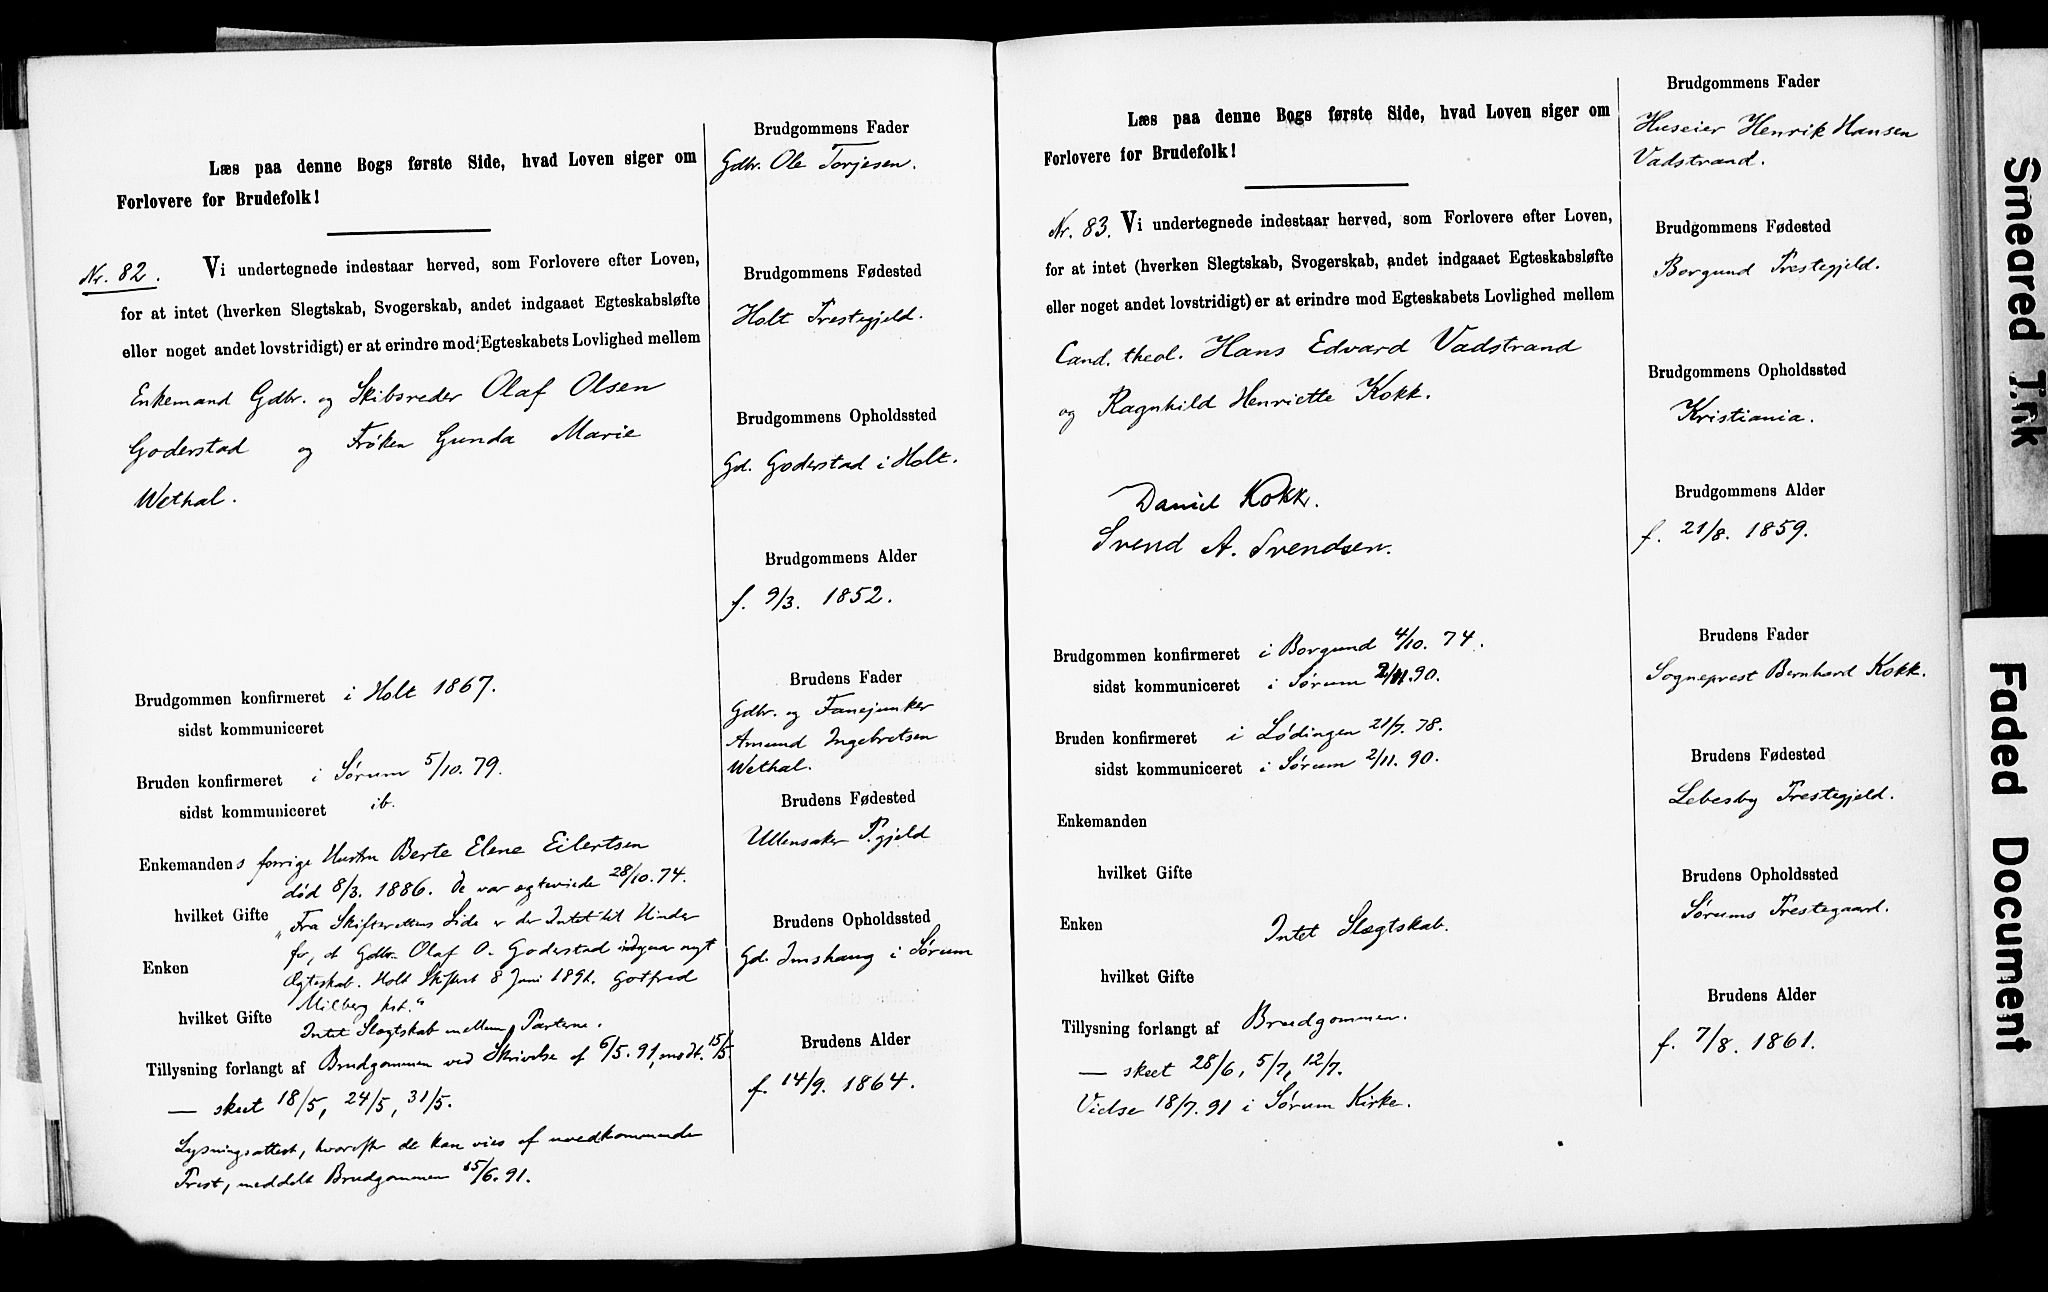 Læs paa denne Bogs første Side, hvad Loven siger om
Forlovere for Brudefolk!
Nr. 82. Vi undertegnede indestaar herved, som Forlovere efter Loven,
for at intet (hverken Slegtskab, Svogerskab, andet indgaaet Egteskabsløfte
eller noget andet lovstridigt) er at erindre mod Egteskabets Lovlighed mellem
Enkemand Gdbr. og Skibsreder Olaf Olsen
Goderstad og Frøken Gunda Marie
Wethal.
Brudgommen konfirmeret i Holt 1867.
sidst kommuniceret
Bruden konfirmeret i Sørum 5/10. 79.
sidst kommuniceret ib.
Enkemandens forrige Hustru Berte Elene Eilertsen
død 8/3. 1886. De var egteviede 28/10. 74.
hvilket Gifte "Fra Skifterettens Side er der Intet til Hinder
for, at Gdbr. Olaf O. Goderstad indgaar nyt
Enken Ægteskab. Holt Skifteret 8 Juni 1891. Gotfred
Milberg kst."
hvilket Gifte
Intet Slegtskab mellem Parterne.
Tillysning forlangt af Brudgommen ved Skrivelse af 6/5. 91, modt. 15/5.
— skeet 18/5, 24/5, 31/5.
Lysningsattest, hvorefter de kan vies af uvedkommende
Prest, meddelt Brudgommen 15/6. 91.
Brudgommens Fader
Gdbr. Ole Torjesen.
Brudgommens Fødested
Holt Prestegjeld.
Brudgommens Opholdssted
Gd. Goderstad i Holt.
Brudgommens Alder
f. 9/3. 1852.
Brudens Fader
Gdbr. og Fanejunker
Amund Ingebretsen
Wethal.
Brudens Fødested
Ullensaker P.gjeld
Brudens Opholdssted
Gd. Imshaug i Sørum
Brudens Alder
f. 14/9. 1864.
Læs paa denne Bogs første Side, hvad Loven siger om
Forlovere for Brudefolk!
Nr. 83. Vi undertegnede indestaar herved, som Forlovere efter Loven,
for at intet (hverken Slegtskab, Svogerskab, andet indgaaet Egteskabsløfte
eller noget andet lovstridigt) er at erindre mod Egteskabets Lovlighed mellem
Cand. theol. Hans Edvard Vadstrand
og Ragnhild Henriette Kokk.
Daniel Kokk.
Svend A. Svendsen.
Brudgommen konfirmeret i Borgund 4/10. 74.
sidst kommuniceret i Sørum 2/11. 90.
Bruden konfirmeret i Lødingen 21/7. 78.
sidst kommuniceret i Sørum 2/11. 90.
Enkemanden
hvilket Gifte
Enken Intet Slegtskab.
hvilket Gifte
Tillysning forlangt af Brudgommen.
— skeet 28/6, 5/7, 12/7.
Vielse 18/7. 91 i Sørum Kirke.
Brudgommens Fader
Huseier Henrik Hansen
Vadstrand.
Brudgommens Fødested
Borgund Prestegjeld.
Brudgommens Opholdssted
Kristiania.
Brudgommens Alder
f. 21/8. 1859.
Brudens Fader
Sogneprest Bernhard Kokk.
Brudens Fødested
Lebesby Prestegjeld.
Brudens Opholdssted
Sørums Prestegaard.
Brudens Alder
f. 7/8. 1861.
Smeared Ink
Faded Document